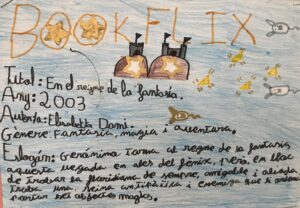 BOOKFLIX
Títol: En el regne de la fantasia.
Any: 2003
Autora: Elisabetta Dami.
Gènere: Fantasia, màgia i aventura.
Eslògan: Gerónimo torna al regne de la fantasia
aquesta vegada en ales del fènix, però, en lloc
de trobar la floridiana de sempre, amigable i aliada
troba una reina antipàtica i enemiga que li
portar set objectes màgics.